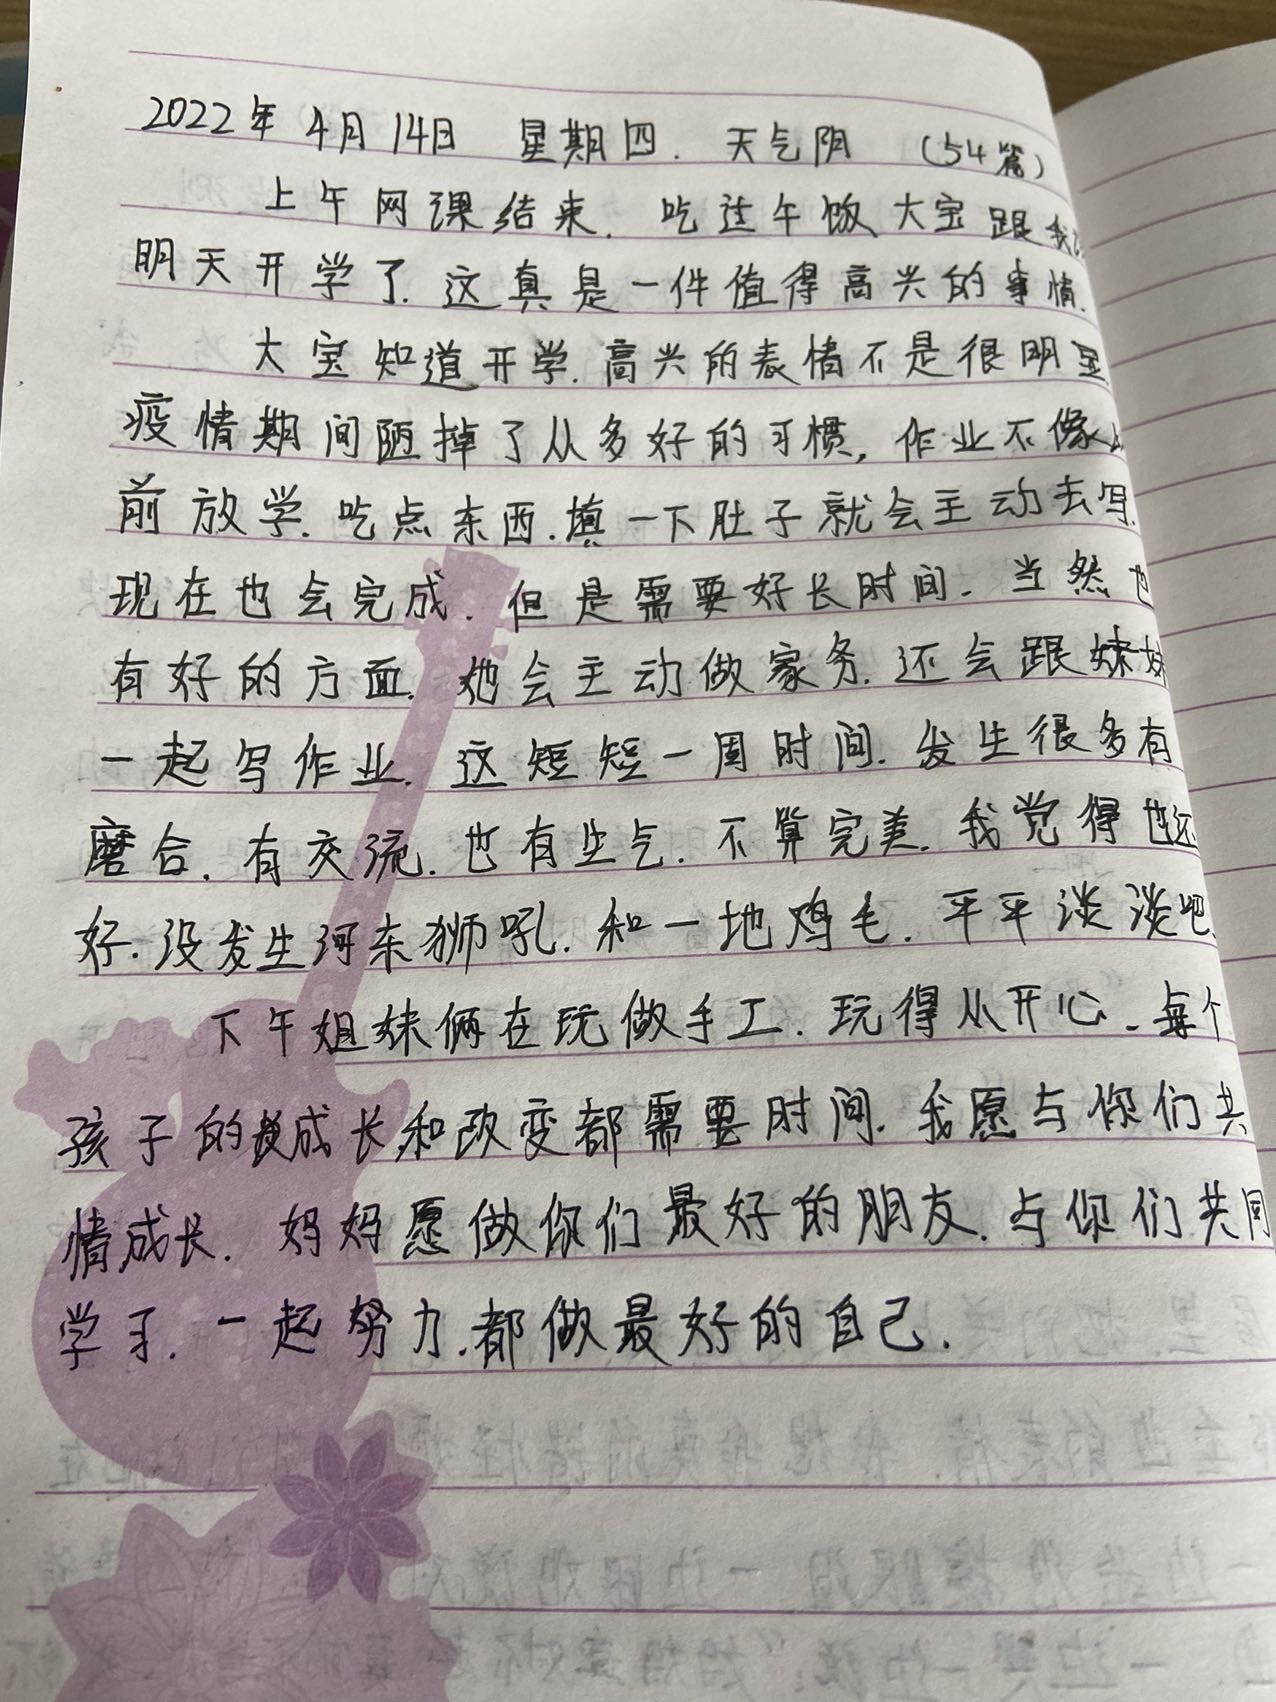 2022年 4月14日 星期四. 天气阴 (54篇)
上午网课结束. 吃过午饭大宝跟我
明天开学了. 这真是一件值得高兴的事情.
大宝知道开学. 高兴的表情不是很明显
疫情期间陋掉了从多好的习惯, 作业不像以
前放学. 吃点东西. 填一下肚子就会主动去写.
现在也会完成. 但是需要好长时间. 当然也
有好的方面. 她会主动做家务. 还会跟妹妹
一起写作业. 这短短一周时间. 发生很多有
磨合. 有交流. 也有生气. 不算完美. 我觉得也还
好. 没发生河东狮吼. 和一地鸡毛. 平平淡淡吧.
下午姐妹俩在玩做手工. 玩得从开心. 每个
孩子的成长和改变都需要时间. 我愿与你们共
情成长. 妈妈愿做你们最好的朋友. 与你们共同
学习. 一起努力. 都做最好的自己.